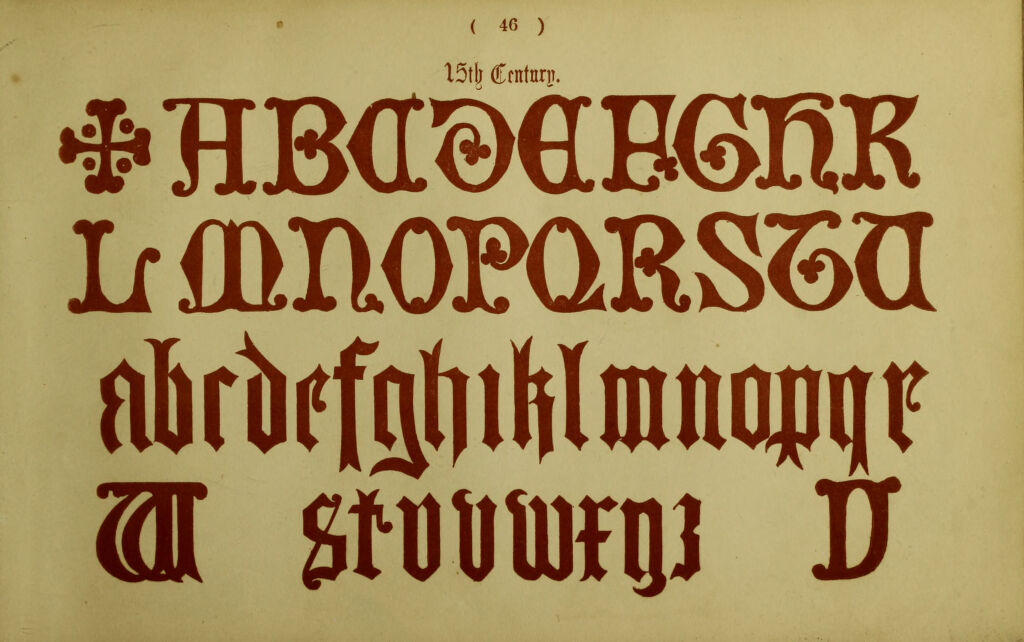 ( 46 )
15th Century.
A B C D E F G H K
L M N O P Q R S T U
a b c d e f g h i k l m n o p q r
W s t u v w x y z D